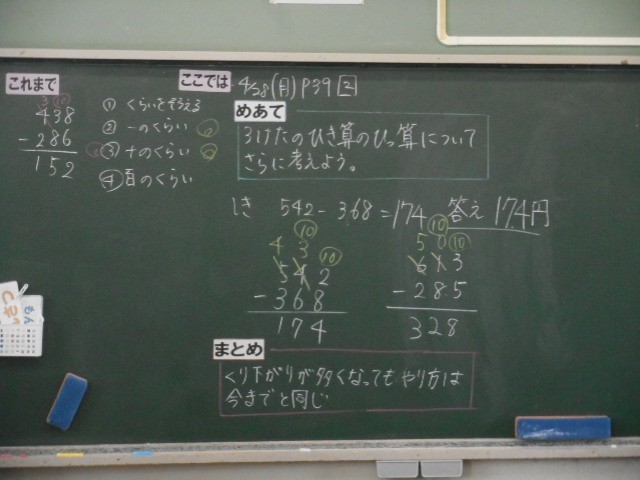 これまで
3 10
438
-286
152
① くらいをそろえる
② 一のくらい
③ 十のくらい
④ 百のくらい
ここでは 4/28(月) P39 2
めあて
3けたのひき算のひっ算について
さらに考えよう。
しき 542-368=174 答え 174円
10
4 3 10
542
-368
174
10
5 0 10
613
-285
328
まとめ
くり下がりが多くなってもやり方は
今までと同じ